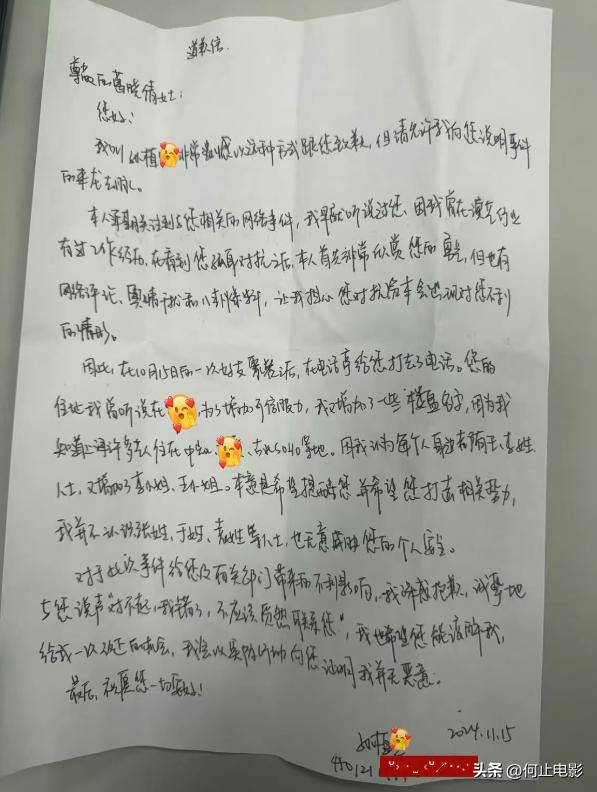 道歉信
尊敬的葛晓倩女士：
您好！
我叫 植 非常抱歉以这种方式跟您致歉，但请允许我向您说明事件
的来龙去脉。
本人军期关注到与您相关的网络事件，我早就听说过您，因我曾在演艺行业
有过工作经历，在看到您 对抗之后，本人首先非常欣赏您的 ，但也有
网络评论、舆情干扰和八卦爆料，让我担心您对抗后车会出现对您不利
的情形。
因此，在10月15日的一次好友聚餐之后，在电话亭给您打去了电话。您的
住址我曾听说在 ，为了增加可信服力，我又增加了一些楼盘名字，因为我
知道上海许多人住在中 、 SOHO等地。因我认为每个人身边都有于、袁姓
人士，又增加了李小姐、王小姐。本意是希望提醒您并希望您打击相关势力，
我并不认识张姓、于姓、袁姓等人士，也无意威胁您的个人安全。
对于此次事件给您及有关部门带来的不利影响，我深感抱歉，诚挚地
与您说声“对不起，我错了，不应该贸然联系您”，我也希望您能谅解我，
给我一次改正的机会，我会以实际行动向您证明我并无恶意。
最后，祝愿您一切安好！
植
2024.11.15
440121
头条 @何止电影